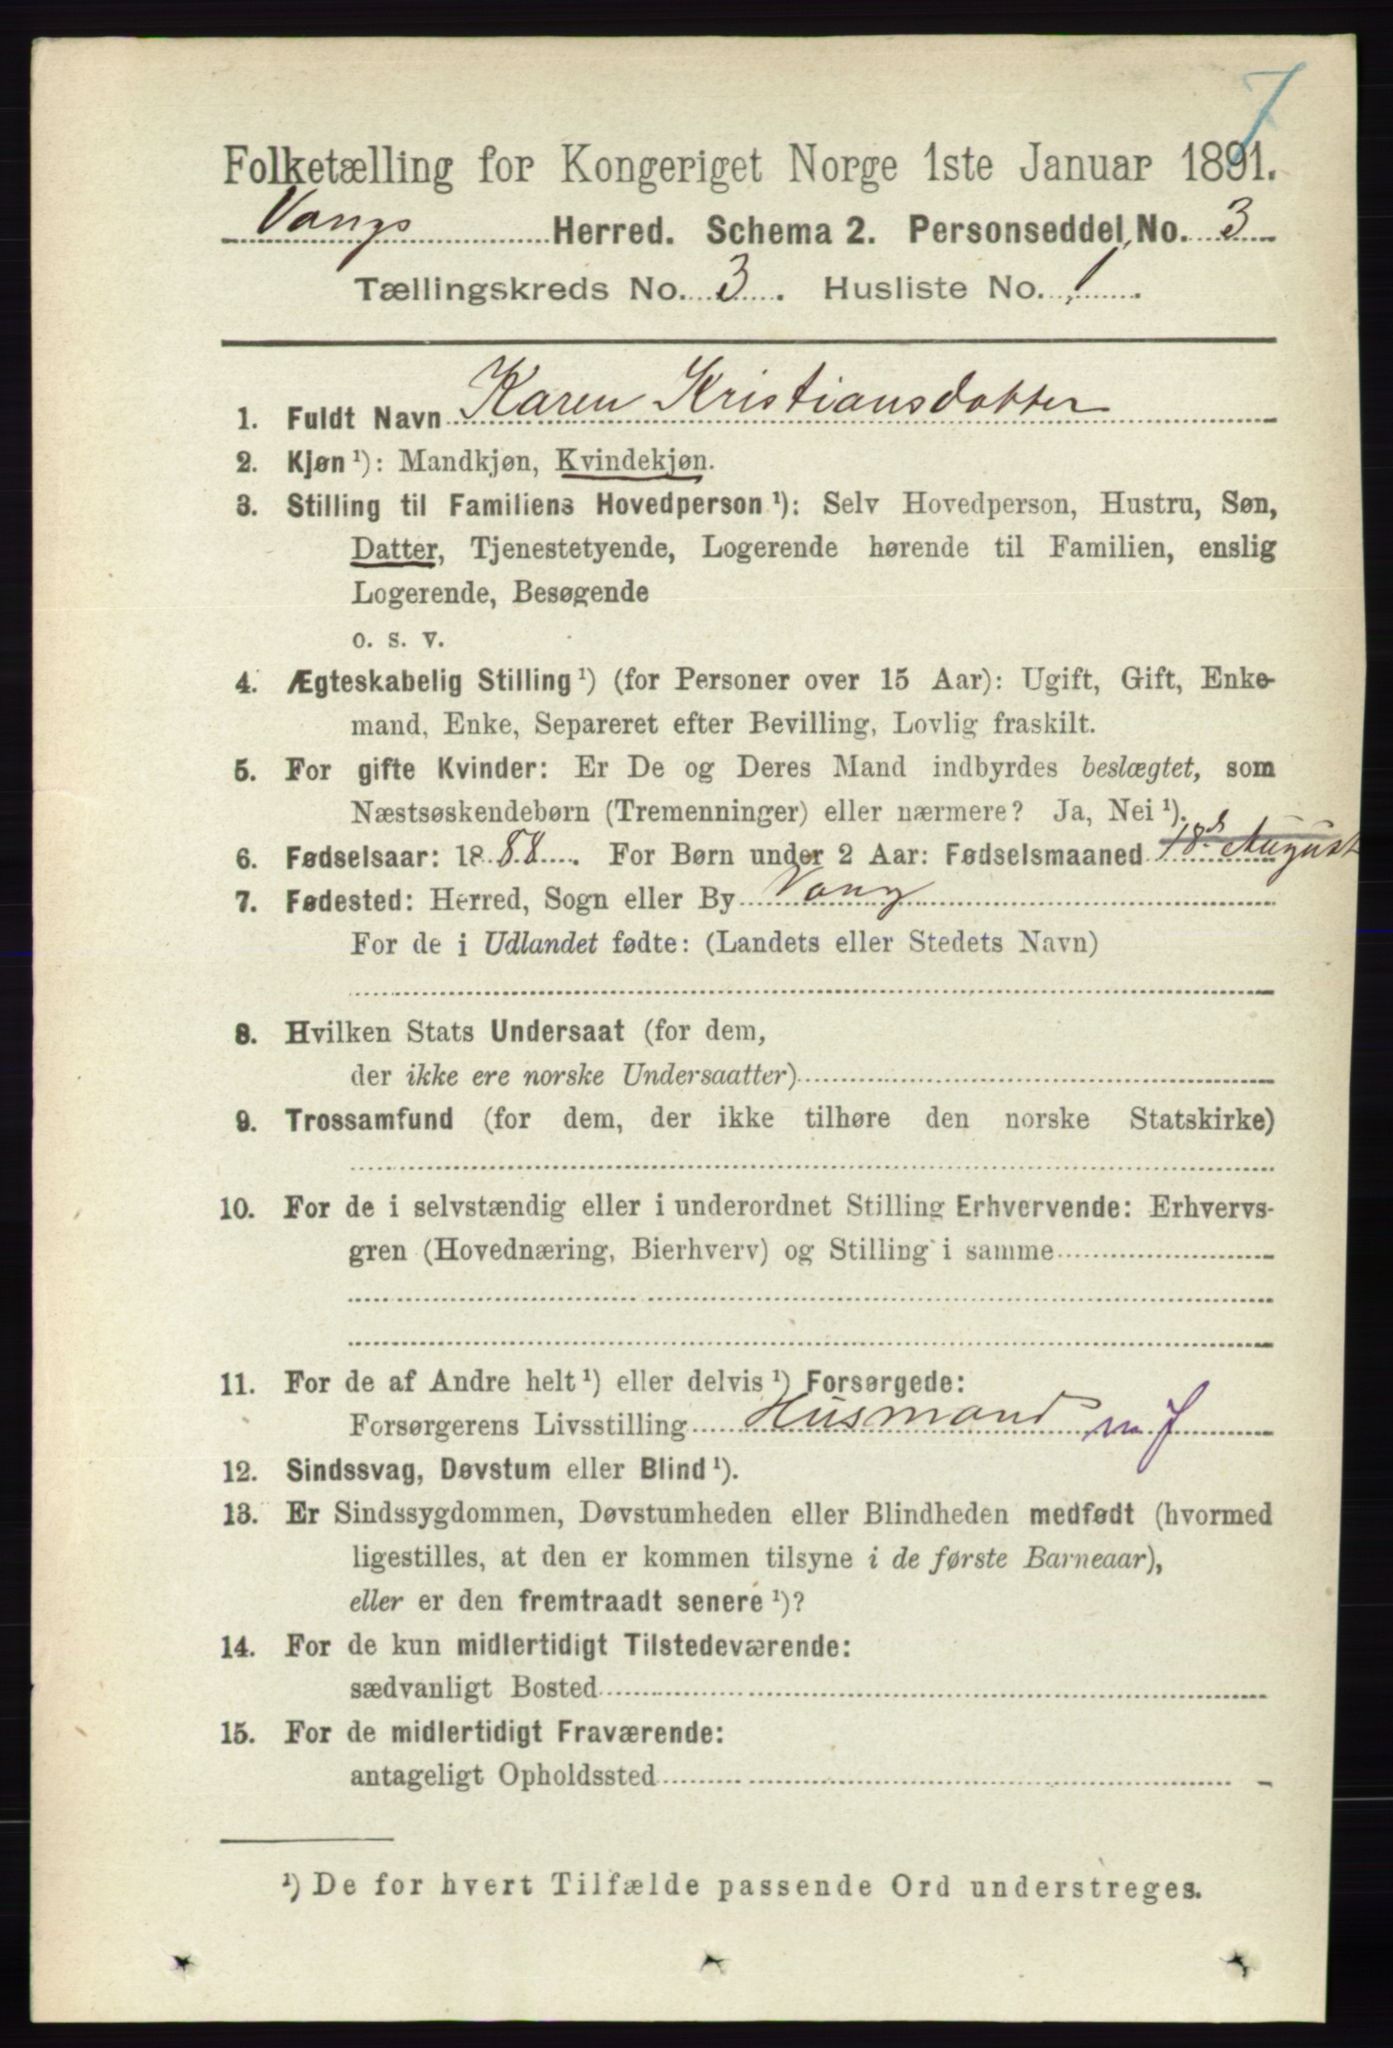 7
Folketælling for Kongeriget Norge 1ste Januar 1891.
Vangs Herred. Schema 2. Personseddel No. 3
Tællingskreds No. 3. Husliste No. 1.
1. Fuldt Navn Karen Kristiansdatter
2. Kjøn ¹): Mandkjøn, Kvindekjøn.
3. Stilling til Familiens Hovedperson ¹): Selv Hovedperson, Hustru, Søn,
Datter, Tjenestetyende, Logerende hørende til Familien, enslig
Logerende, Besøgende
o. s. v.
4. Ægteskabelig Stilling ¹) (for Personer over 15 Aar): Ugift, Gift, Enke-
mand, Enke, Separeret efter Bevilling, Lovlig fraskilt.
5. For gifte Kvinder: Er De og Deres Mand indbyrdes beslægtet, som
Næstsøskendebørn (Tremenninger) eller nærmere? Ja, Nei ¹).
6. Fødselsaar: 1888. For Børn under 2 Aar: Fødselsmaaned 18de August
7. Fødested: Herred, Sogn eller By Vang
For de i Udlandet fødte: (Landets eller Stedets Navn)
8. Hvilken Stats Undersaat (for dem,
der ikke ere norske Undersaatter)
9. Trossamfund (for dem, der ikke tilhøre den norske Statskirke)
10. For de i selvstændig eller i underordnet Stilling Erhvervende: Erhvervs-
gren (Hovednæring, Bierhverv) og Stilling i samme
11. For de af Andre helt ¹) eller delvis ¹) Forsørgede:
Forsørgerens Livsstilling Husmand m J
12. Sindssvag, Døvstum eller Blind ¹).
13. Er Sindssygdommen, Døvstumheden eller Blindheden medfødt (hvormed
ligestilles, at den er kommen tilsyne i de første Barneaar),
eller er den fremtraadt senere ¹)?
14. For de kun midlertidigt Tilstedeværende:
sædvanligt Bosted
15. For de midlertidigt Fraværende:
antageligt Opholdssted
¹) De for hvert Tilfælde passende Ord understreges.